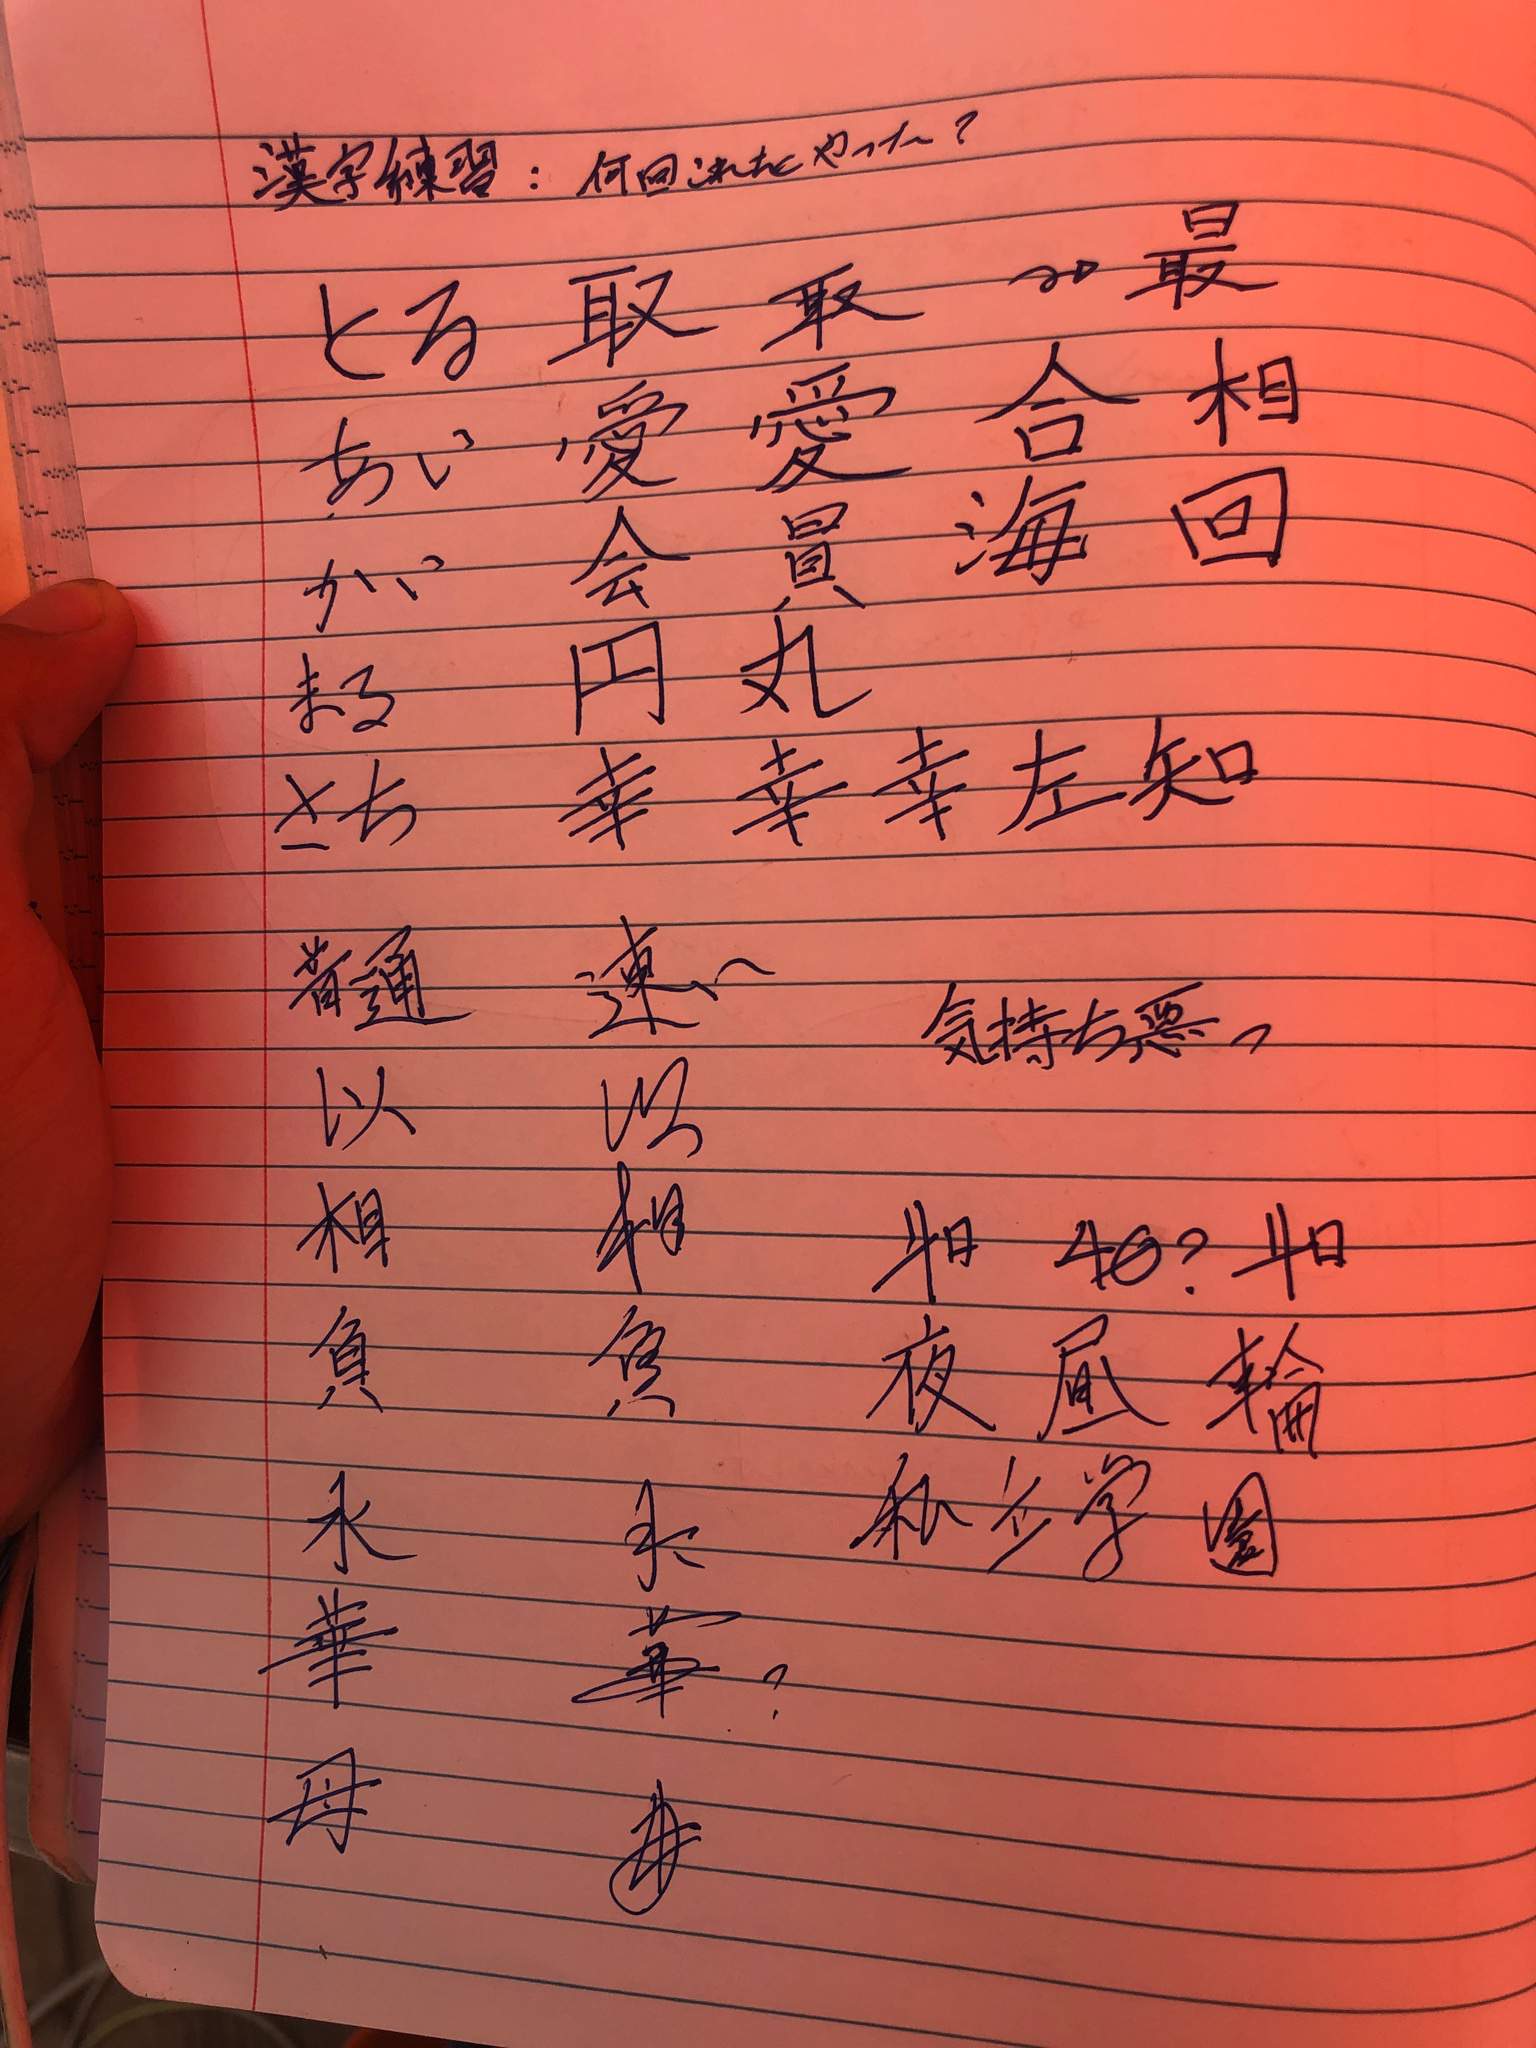 漢字練習：何回これをやった？
とる 取 取 → 最
あい 愛 愛 合 相
かい 会 員 海 回
まる 円 丸
さち 幸 幸 幸 左 知
普通 速い
気持ち悪っ
以 以
相 相
和 40? 和
負 負
夜 昼 輪
永 永
私 立 学 園
華 華?
母 母